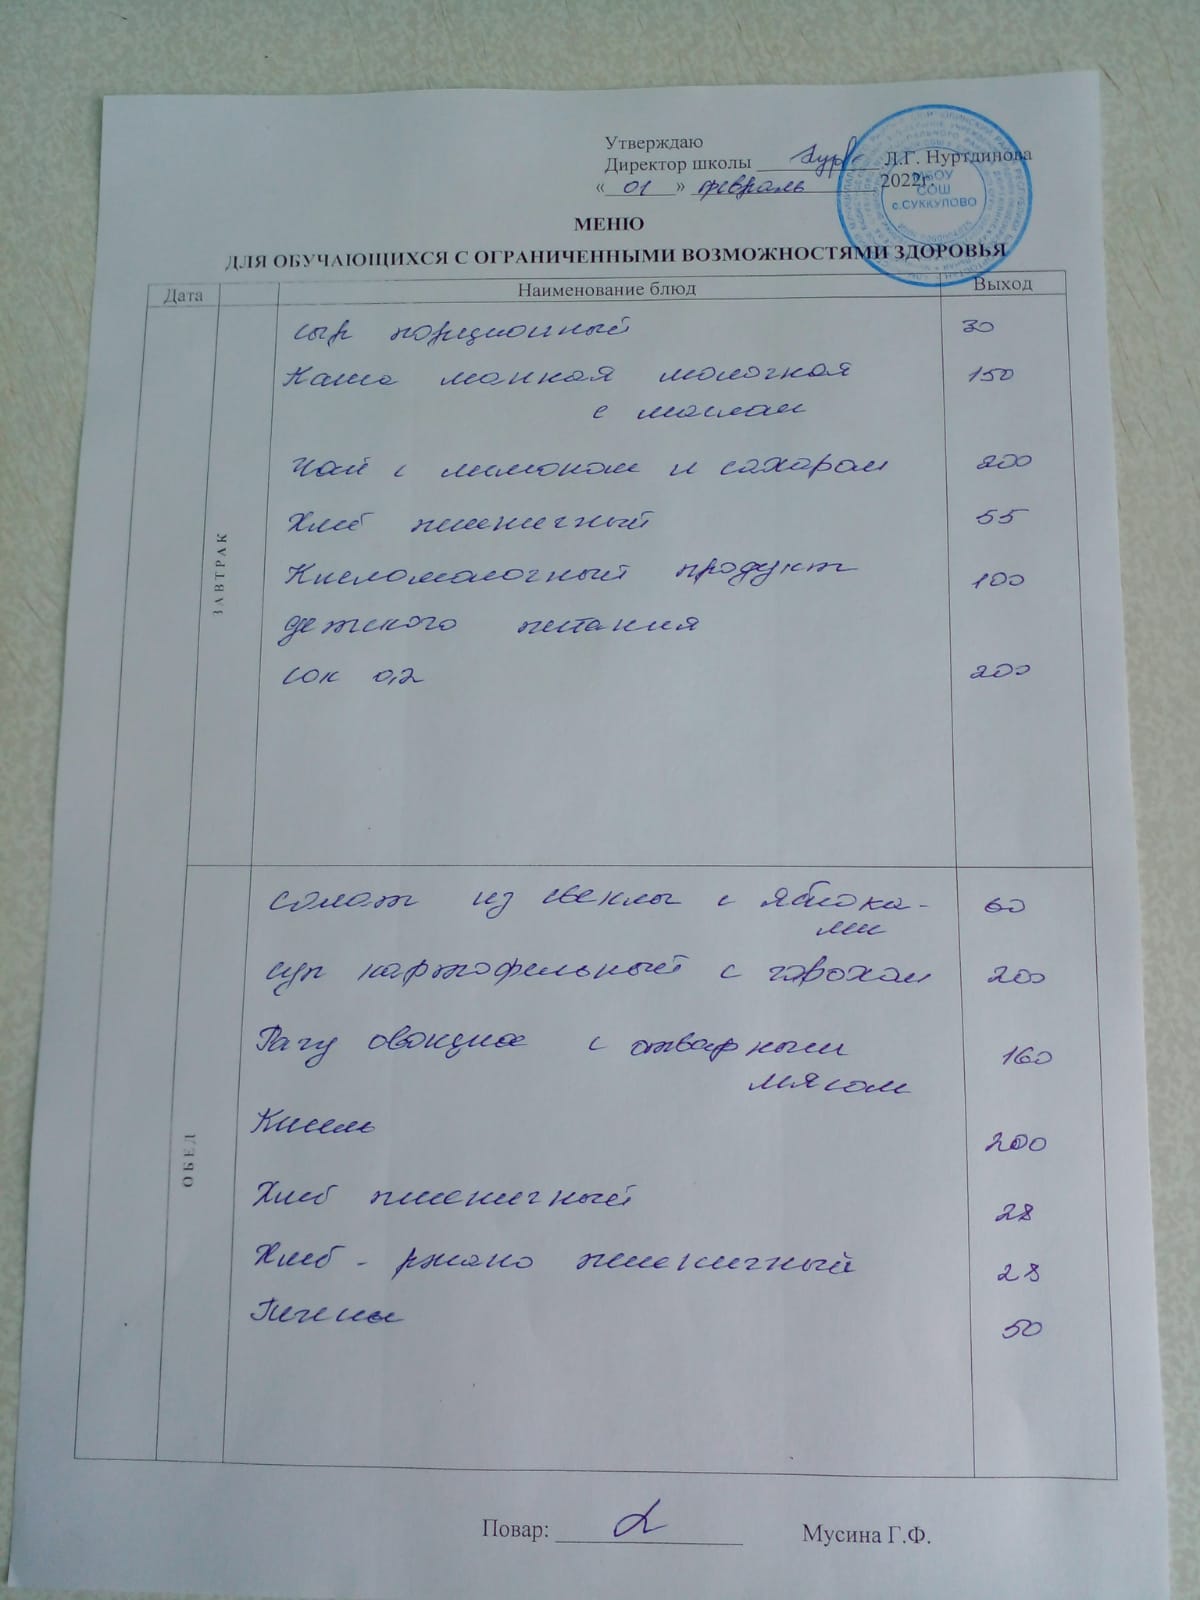 Утверждаю
Директор школы Л.Г. Нуртдинова
« 01 » февраль 2022г.
МБОУ
СОШ
с.СУККУЛОВО
МЕНЮ
ДЛЯ ОБУЧАЮЩИХСЯ С ОГРАНИЧЕННЫМИ ВОЗМОЖНОСТЯМИ ЗДОРОВЬЯ
Дата Наименование блюд Выход
ЗАВТРАК
сыр порционный 30
Каша манная молочная 150
с маслом
Чай с лимоном и сахаром 200
Хлеб пшеничный 55
Кисломолочный продукт 100
детского питания
сок 0,2 200
ОБЕД
салат из свеклы с яблока- 60
ми
суп картофельный с горохом 200
Рагу овощное с отварным 160
мясом
Кисель 200
Хлеб пшеничный 28
Хлеб - ржано пшеничный 28
Печенье 50
Повар: Мусина Г.Ф.